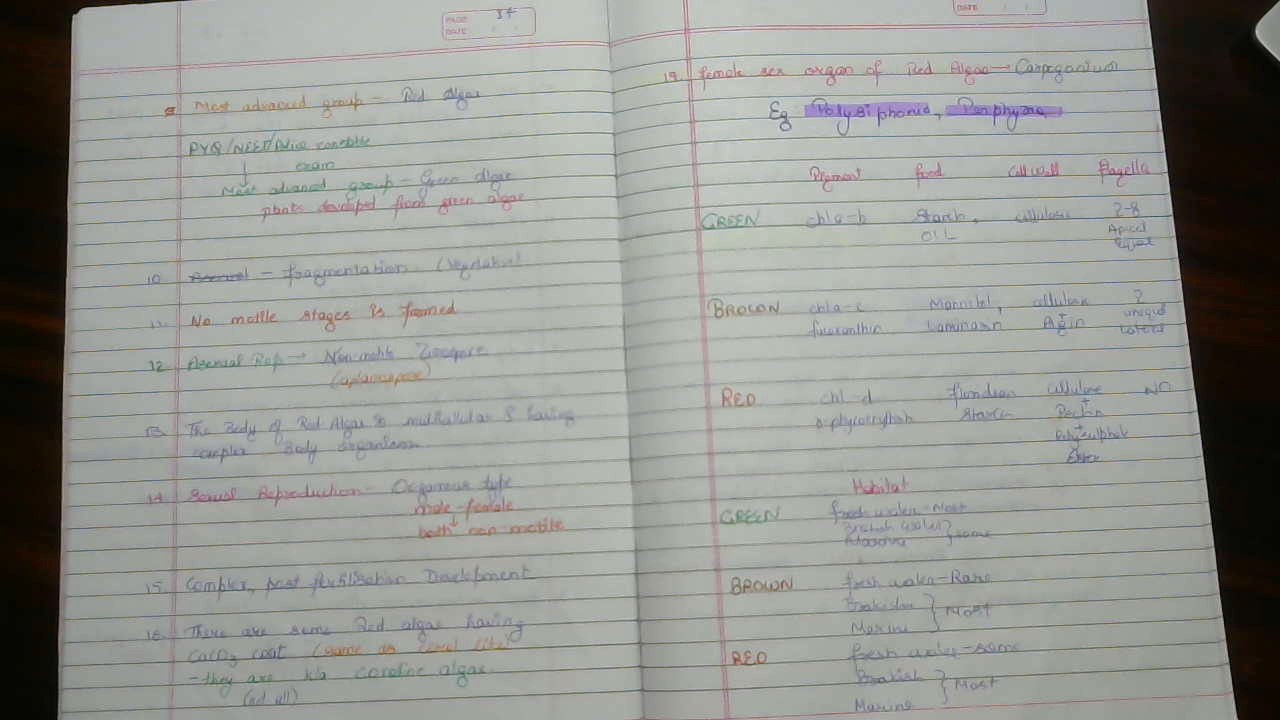 PAGE 34
DATE
Most advanced group - Red algae
PYQ/NEET/
exam
Most advanced group - Green algae
plants developed from green algae
10. - fragmentation (vegetative)
11. No motile stages is formed
12. Asexual Rep → Non-motile Zoospore
(aplanospore)
13. The Body of Red Algae is multicellular & having
complex Body organism
14. Sexual Reproduction - Oogamous type
male - female
both non motile
15. Complex, post fertilisation Development
16. There are some Red algae having
CaCO3 coat (same as
- they are k/a coraline algae.
(not all)
DATE
female sex organ of Red Algae → Carpogonium
Eg Polysiphonia, Porphyra
Pigment food Cell Wall flagella
GREEN chl a-b Starch, cellulose 2-8
OIL Apical
Equal
BROWN chl a-c Mannitol, cellulose 2
fucoxanthin Laminarin + Algin unequal
Lateral
RED chl-d floridean cellulose NO
Starch + Pectin
+ Poly sulphate
Ester
Habitat
GREEN fresh water - Most
Brakish water
Marine } some
BROWN fresh water - Rare
Brakish
Marine } Most
RED fresh water - some
Brakish
Marine } Most